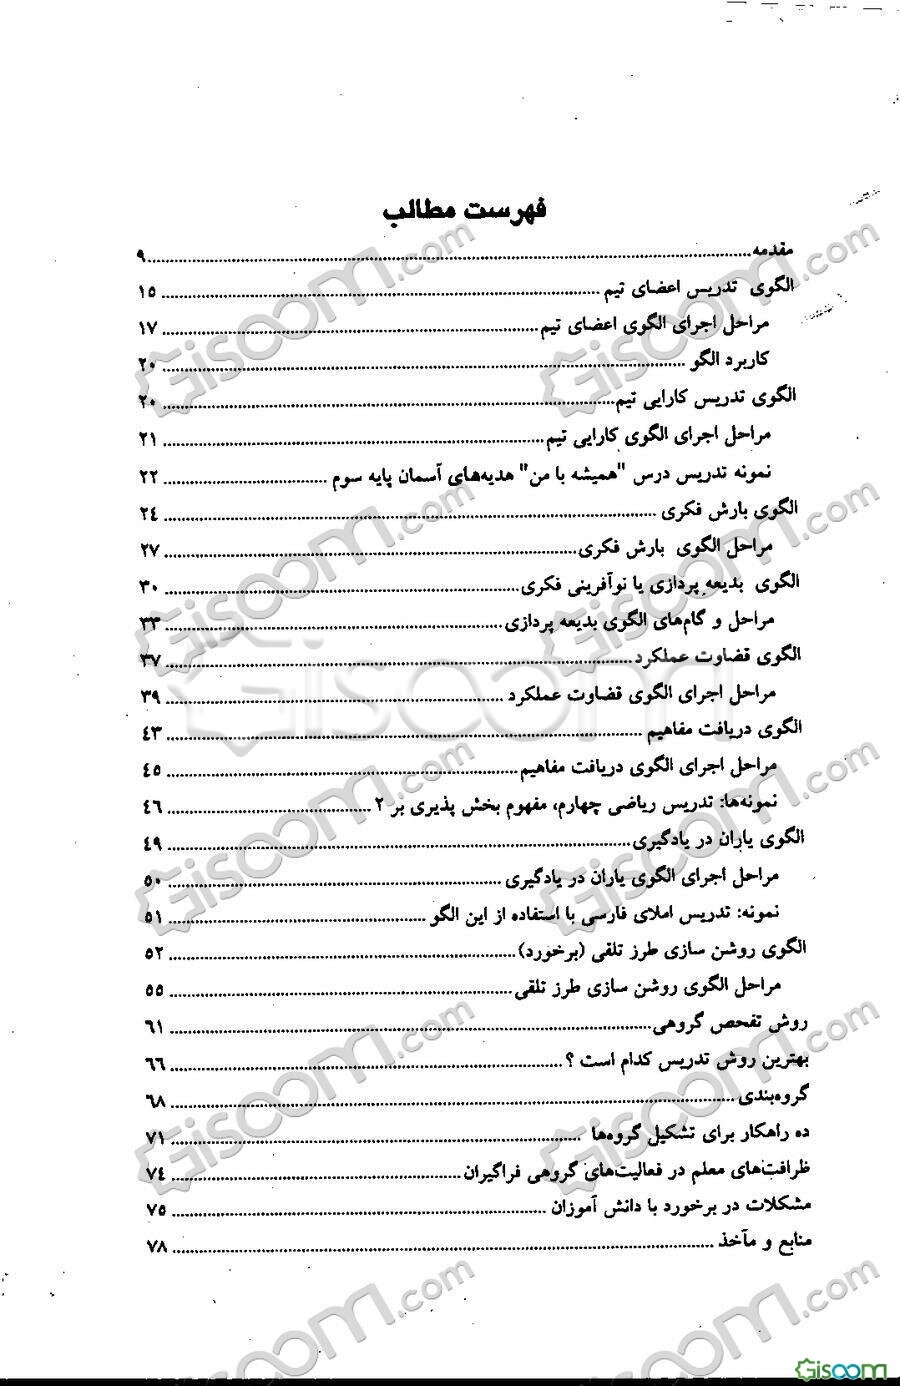 فهرست مطالب
مقدمه............................................................۹
الگوی تدریس اعضای تیم ............................................................ ۱۵
مراحل اجرای الگوی اعضای تیم ............................................................ ۱۷
کاربرد الگو ............................................................ ۲۰
الگوی تدریس کارایی تیم............................................................ ۲۰
مراحل اجرای الگوی کارایی تیم............................................................ ۲۱
نمونه تدریس درس "همیشه با من" هدیه‌های آسمان پایه سوم ........................................ ۲۲
الگوی بارش فکری ............................................................ ۲۴
مراحل الگوی بارش فکری............................................................ ۲۷
الگوی بدیعه پردازی یا نوآفرینی فکری............................................................ ۳۰
مراحل و گام‌های الگوی بدیعه پردازی............................................................ ۳۳
الگوی قضاوت عملکرد............................................................ ۳۷
مراحل اجرای الگوی قضاوت عملکرد ............................................................ ۳۹
الگوی دریافت مفاهیم ............................................................ ۴۳
مراحل اجرای الگوی دریافت مفاهیم............................................................ ۴۵
نمونه‌ها: تدریس ریاضی چهارم، مفهوم بخش پذیری بر ۲ ........................................ ۴۶
الگوی یاران در یادگیری............................................................ ۴۹
مراحل اجرای الگوی یاران در یادگیری ............................................................ ۵۰
نمونه: تدریس املای فارسی با استفاده از این الگو ........................................ ۵۱
الگوی روشن سازی طرز تلقی (برخورد)............................................................ ۵۲
مراحل الگوی روشن سازی طرز تلقی............................................................ ۵۵
روش تفحص گروهی............................................................ ۶۱
بهترین روش تدریس کدام است ؟ ............................................................ ۶۶
گروه‌بندی............................................................ ۶۸
ده راهکار برای تشکیل گروه‌ها ............................................................ ۷۱
ظرافت‌های معلم در فعالیت‌های گروهی فراگیران............................................................ ۷۴
مشکلات در برخورد با دانش آموزان ............................................................ ۷۵
منابع و مآخذ ............................................................ ۷۸
Gisoom.com
Gisoom